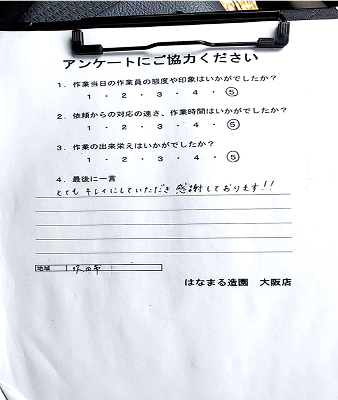 アンケートにご協力ください
1．作業当日の作業員の態度や印象はいかがでしたか？
1 ・ 2 ・ 3 ・ 4 ・ ⑤
2．依頼からの対応の速さ、作業時間はいかがでしたか？
1 ・ 2 ・ 3 ・ 4 ・ ⑤
3．作業の出来栄えはいかがでしたか？
1 ・ 2 ・ 3 ・ 4 ・ ⑤
4．最後に一言
とても キレイにしていただき 感謝しております!!
地域 吹田市
はなまる造園 大阪店